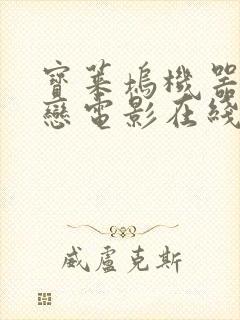 寶萊塢機器
戀電影在綫
威盧克斯